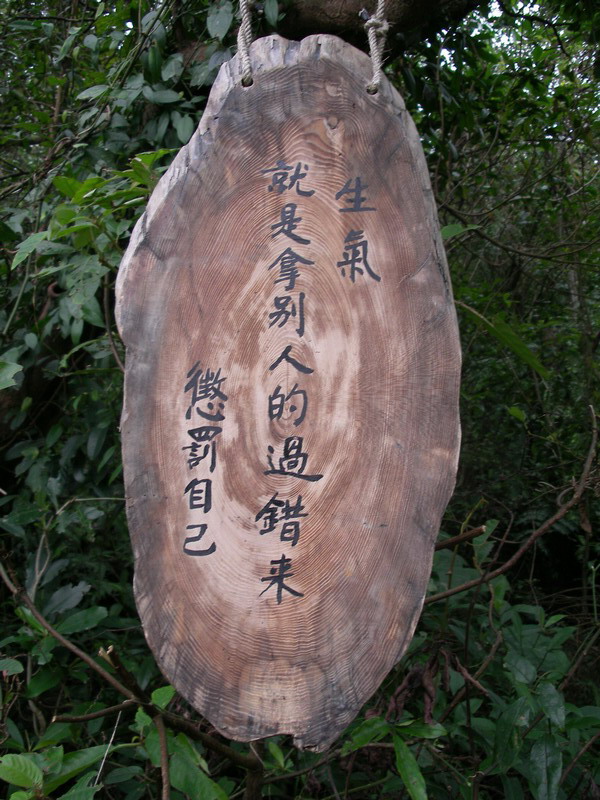 生氣
就是拿別人的過錯来
懲罰自己